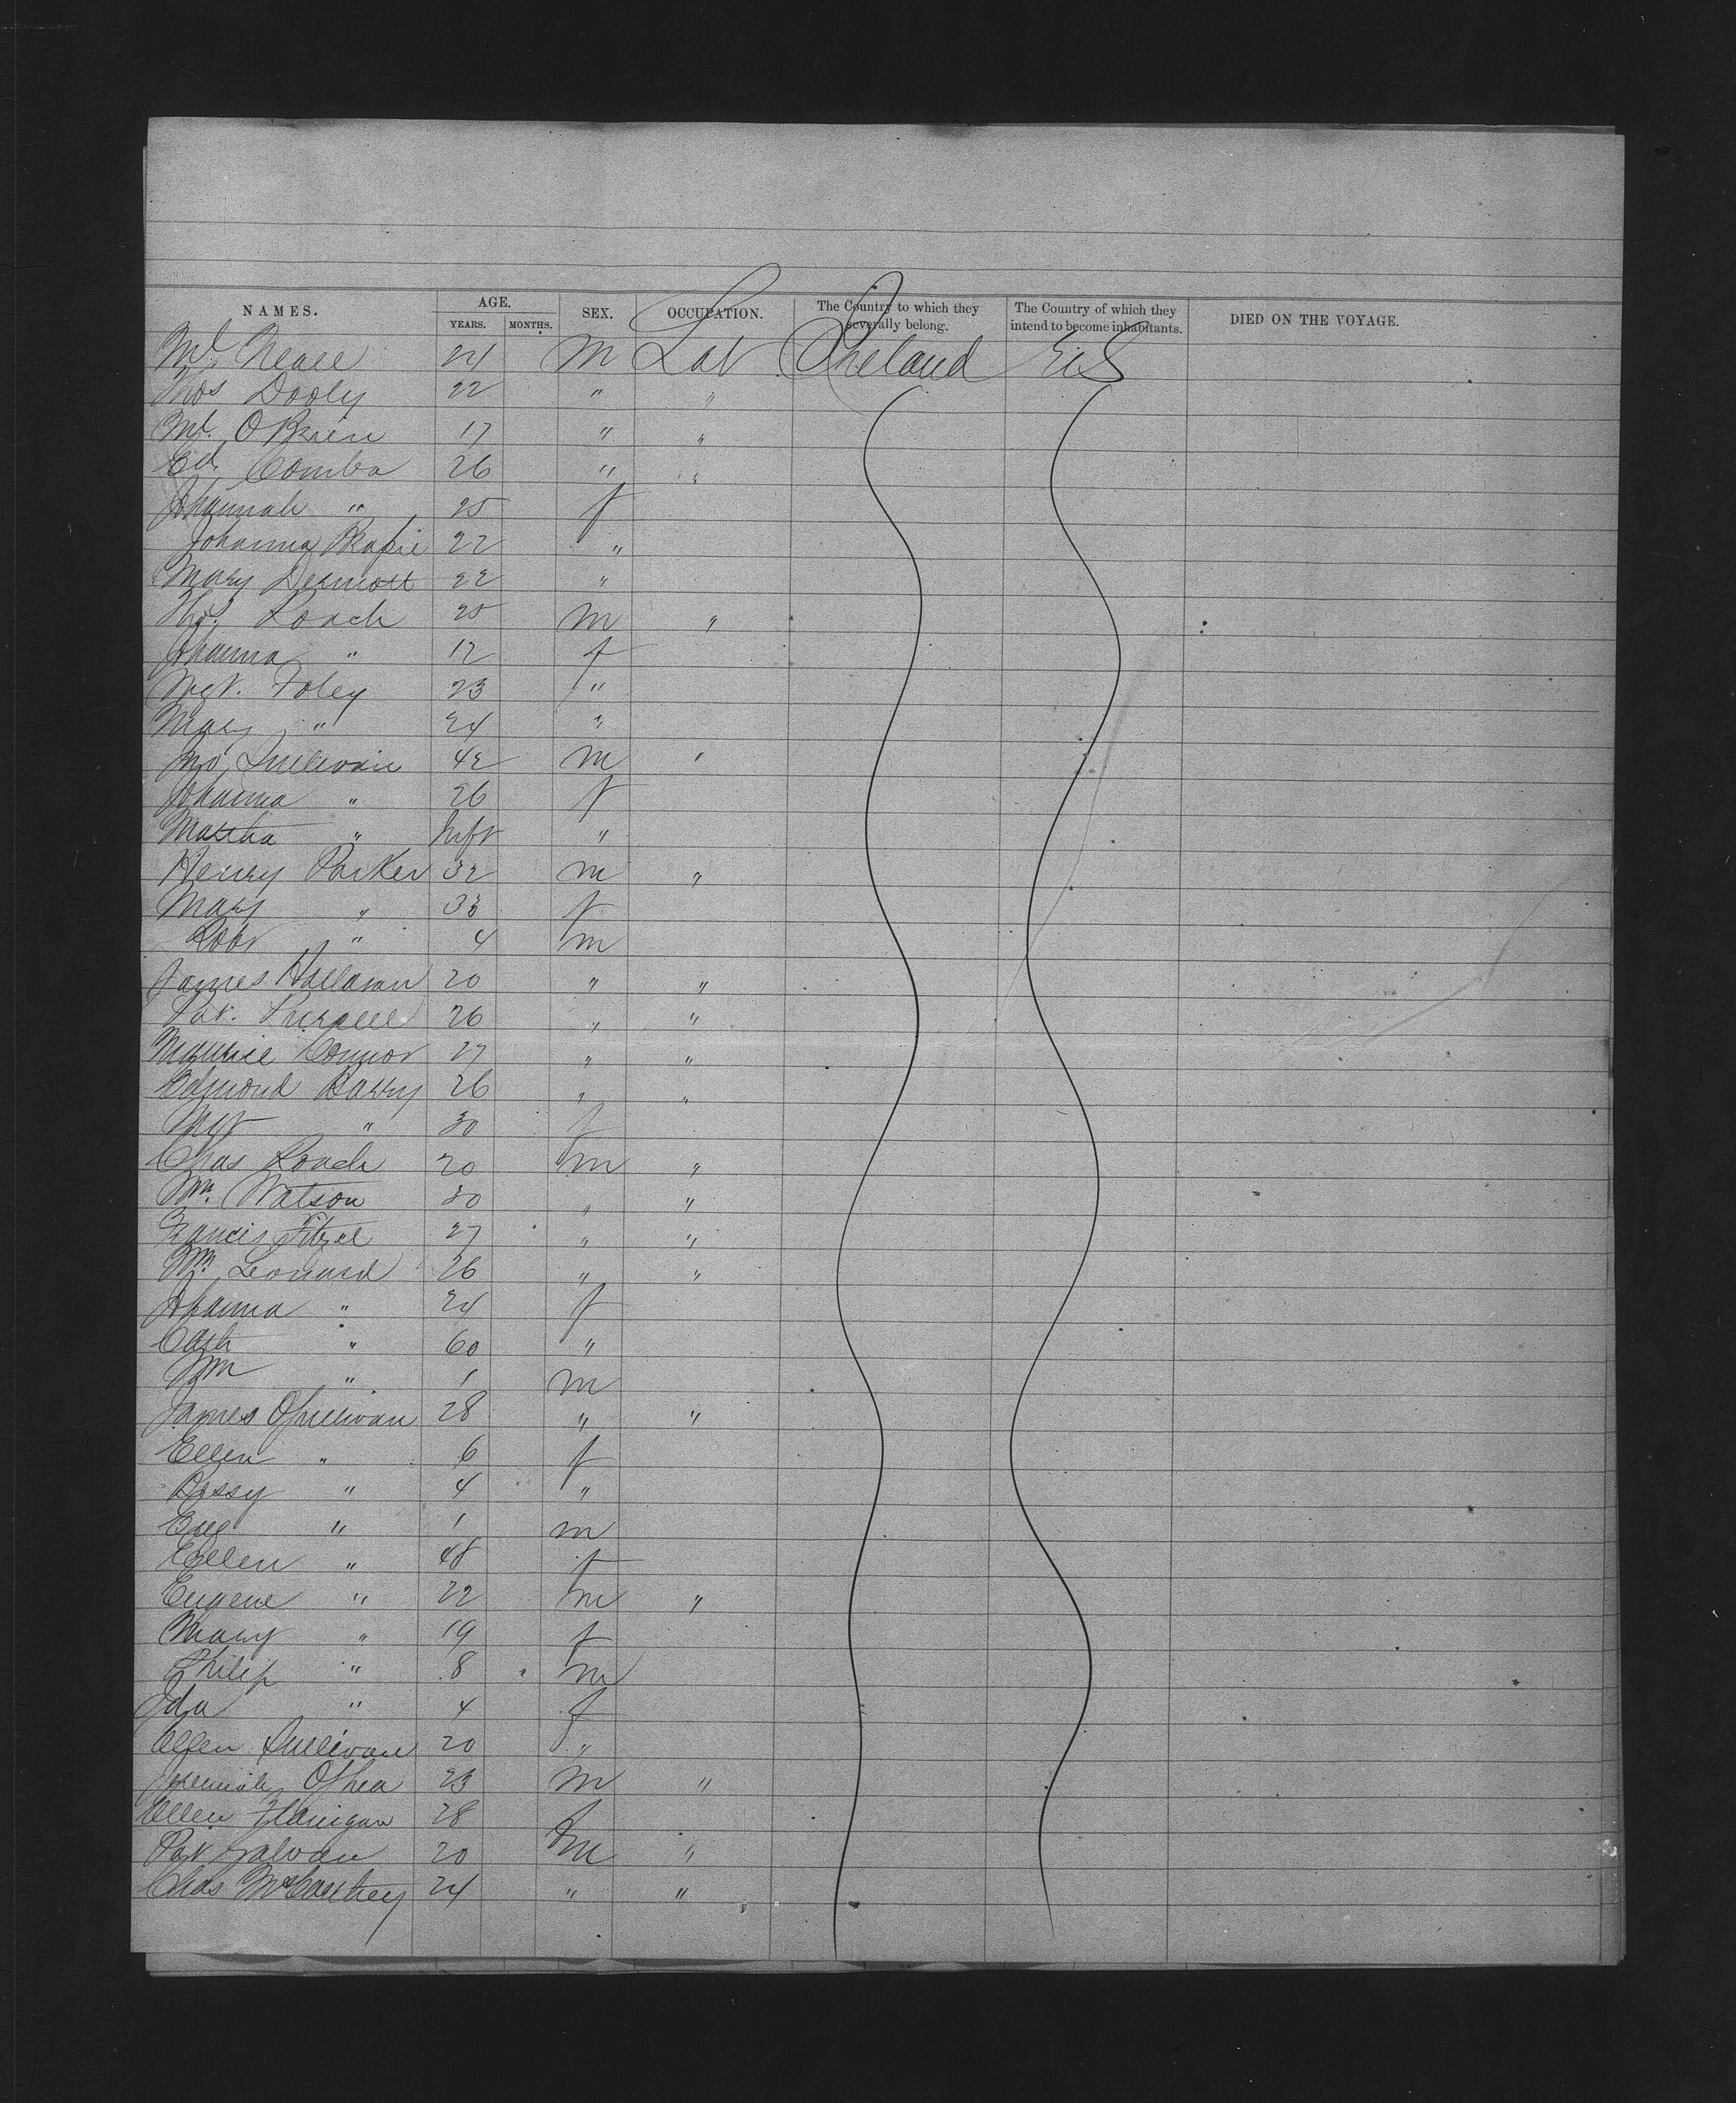 NAMES. AGE. SEX. OCCUPATION. The Country to which they severally belong. The Country of which they intend to become inhabitants. DIED ON THE VOYAGE.
YEARS. MONTHS.
Ml. Neall 24 M Lab Ireland U.S
Thos Dooly 22 " "
Ml. OBrien 17 " "
Ed. Comba 26 " "
Johannah " 25 f
Johanna 22 "
Mary Dermott 22 "
Tho. Roach 25 M "
Johanna " 12 f
Mgt. Foley 23 "
Mary " 24 "
Jno Sullivan 42 M "
Johanna " 26 f
Martha " Inft "
Henry Parker 32 M "
Mary " 33 f
Robt " 4 M
James Halloran 20 " "
Pat. Pursell 26 " "
Maurice Connor 27 " "
Edmond Barry 26 " "
Mgt " 30 f
Chas Roach 20 M "
Wm. Watson 30 " "
Francis 27 " "
Wm. Leonard 26 " "
Johanna " 24 f
Cath " 60 "
Wm " 1 M
James OSullivan 28 " "
Ellen " 6 f
Bessy " 4 "
Eug " 1 M
Ellen " 48 f
Eugene " 22 M "
Mary " 19 f
Philip " 8 M
Ida " 4 f
Ellen Sullivan 20 "
Jeremiah OShea 23 M "
Ellen Flanigan 28 f
Pat Galvan 20 M "
Chas McCarthey 24 " "